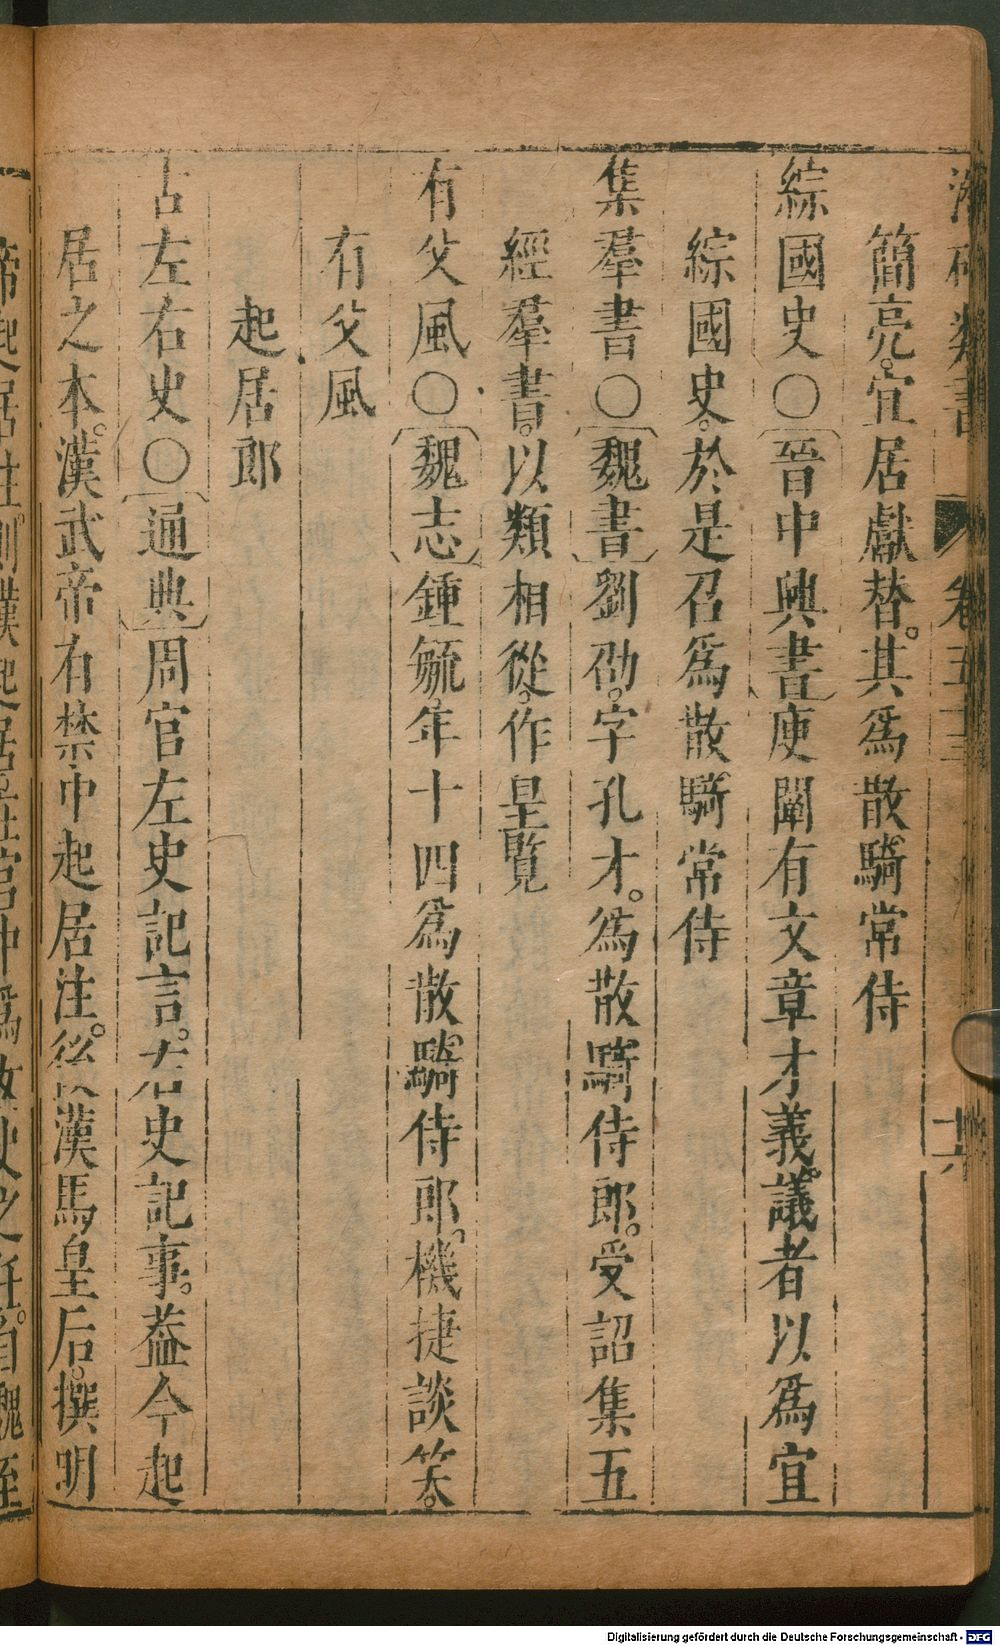 簡亮。宜居獻替。其爲散騎常侍
綜國史〇晉中興書庾闡有文章才義。議者以爲宜
綜國史。於是召爲散騎常侍
集羣書〇魏書劉劭。字孔才。爲散騎侍郎。受詔集五
經羣書。以類相從。作皇覽
有父風〇魏志鍾毓。年十四爲散騎侍郎。機捷談笑。
有父風
起居郎
古左右史〇通典周官左史記言。右史記事。葢今起
居之本。漢武帝有禁中起居注。後漢馬皇后。撰明
Digitalisierung gefördert durch die Deutsche Forschungsgemeinschaft - DFG